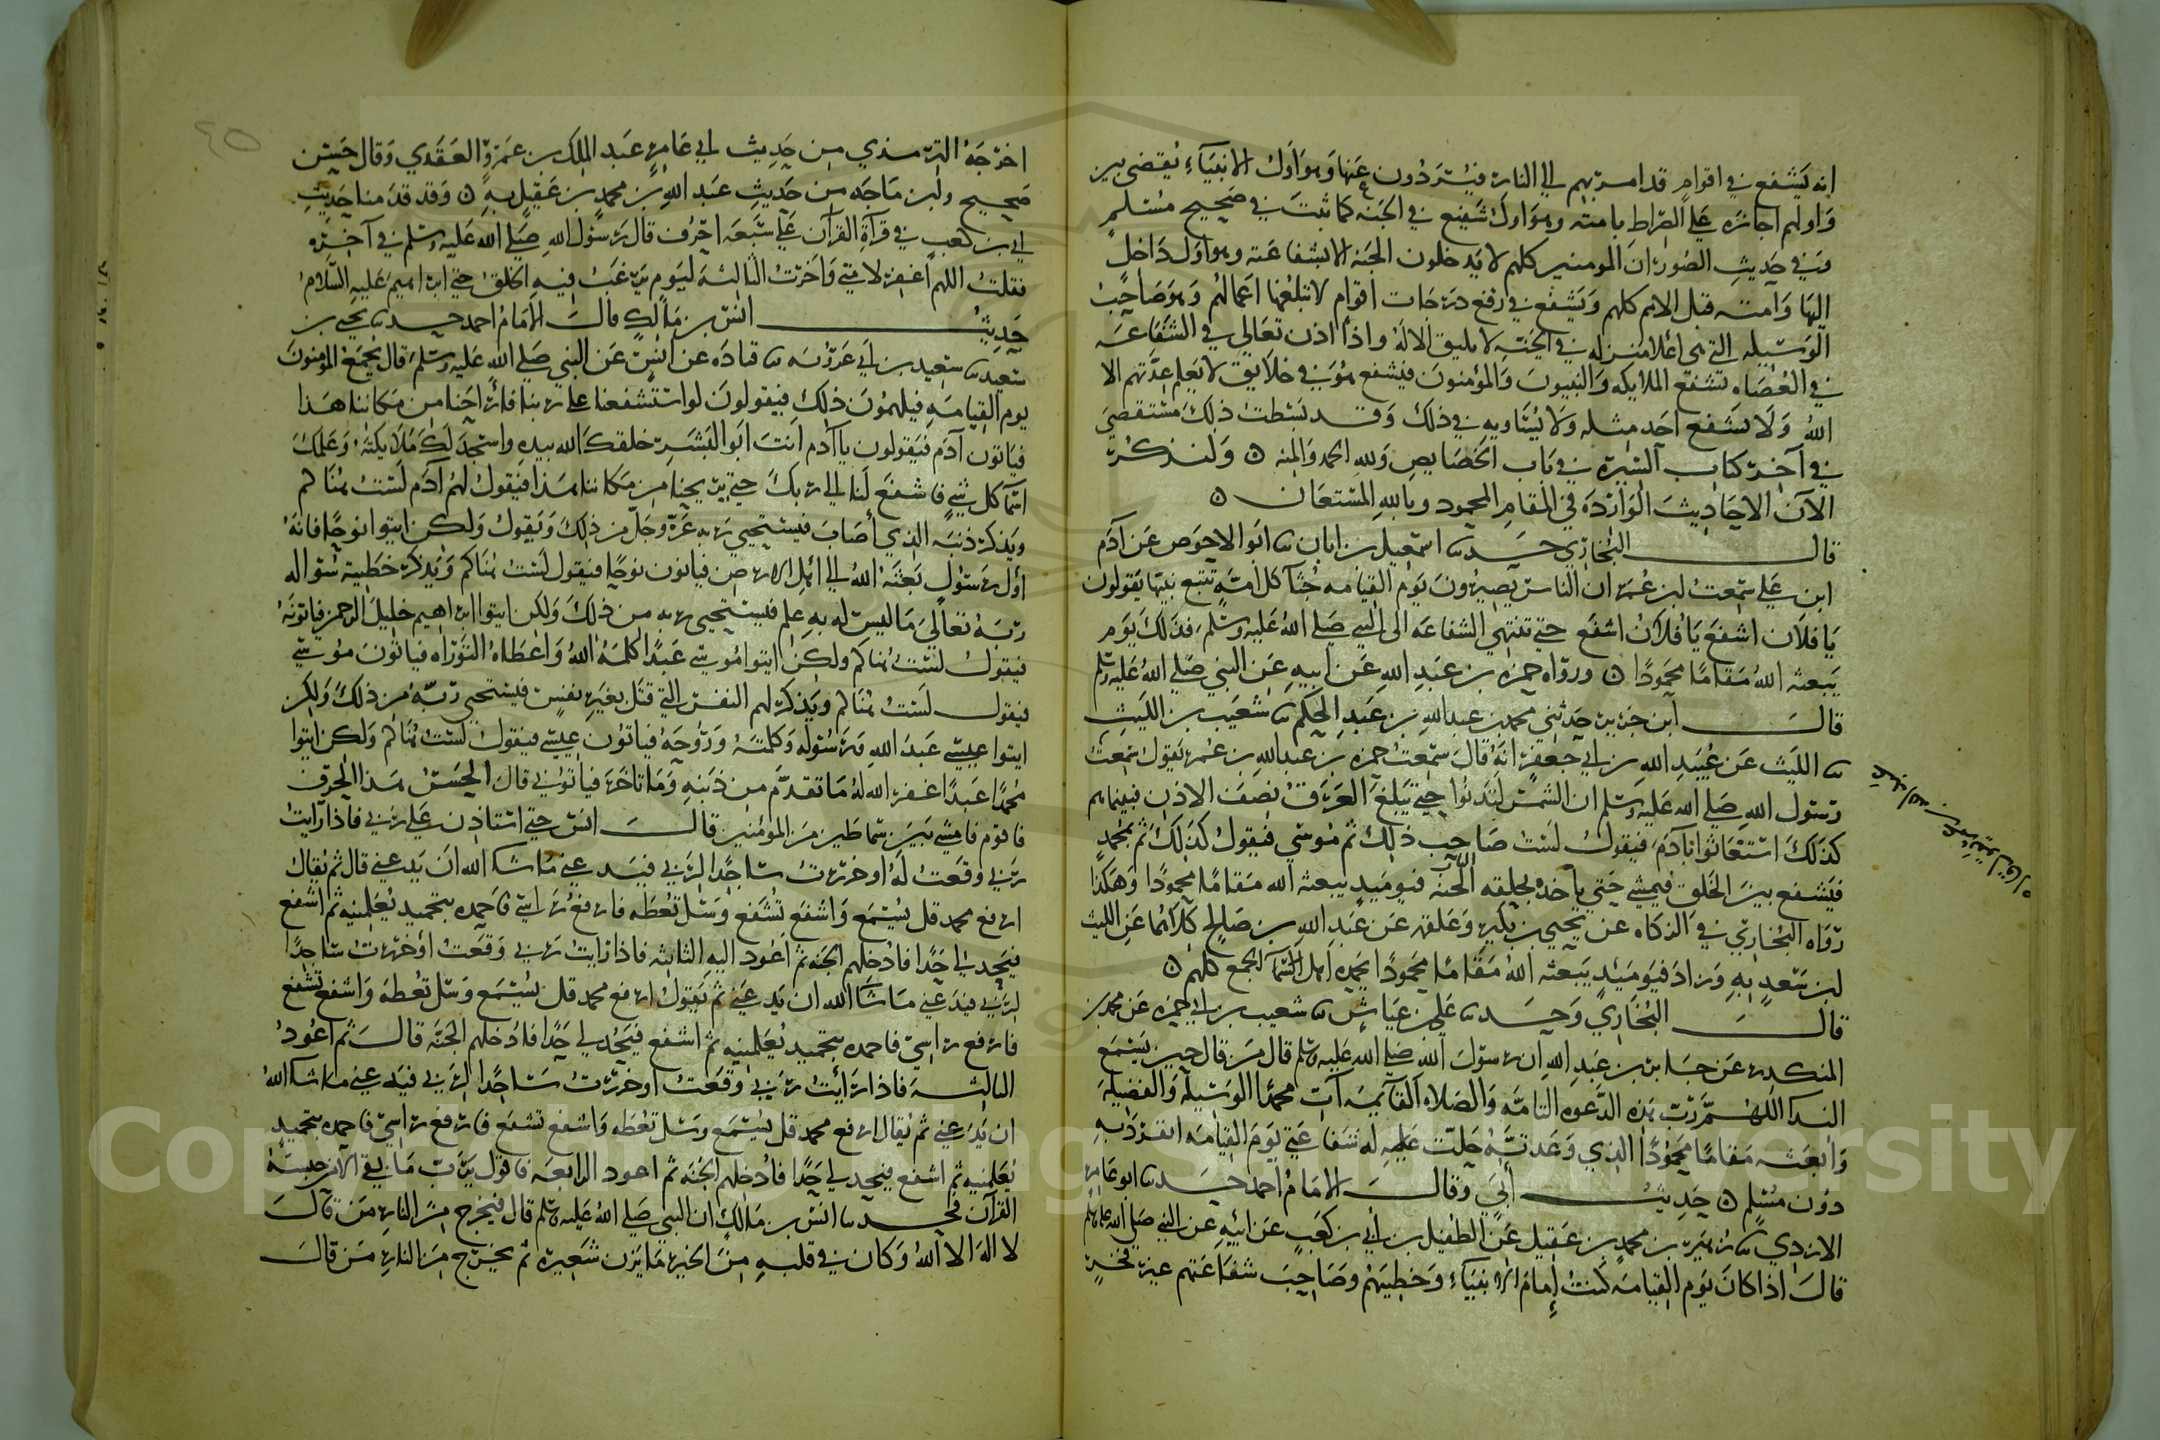 انه يشفع في اقوام قد امر بهم الي النار فيردون عنها وهو اول الانبياء يقضى بين
واولهم اجازه علي الصراط بامته وهو اول شفيع في الجنه كما ثبت في صحيح مسلم
وفي حديث الصور ان المومنين كلهم لا يدخلون الجنه الا بشفاعته وهو اول داخل
اليها وامته قبل الامم كلهم ويشفع في رفع درجات اقوام لا تبلغها اعمالهم وهو صاحب
الوسيله التي هي اعلا منزله في الجنه لا تليق الا له واذا اذن تعالي في الشفاعه
في العصاه تشفع الملايكه والنبيون والمؤمنون فيشفع هو في خلايق لا يعلم عدتهم الا
الله ولا يشفع احد مثله ولا يساويه في ذلك وقد بسطت ذلك مستقصي
في آخر كتاب السيره في باب الخصايص ولله الحمد والمنه ○ ولنذكر
الآن الاحاديث الوارده في المقام المحمود وبالله المستعان ○
قال البخاري حد ثنا اسمعيل بن ابان ثنا ابو الاحوص عن آدم
ابن علي سمعت ابن عمر ان الناس يصيرون يوم القيامه جثا كل امة تتبع نبيها يقولون
يا فلان اشفع يا فلان اشفع حتي تنتهي الشفاعه الي النبي صلي الله عليه وسلم فذلك يوم
يبعثه الله مقاما محمودا ○ ورواه حمزه بن عبد الله عن ابيه عن النبي صلي الله عليه وسلم
قال ابن جرير حدثني محمد بن عبد الله بن عبد الحكم ثنا شعيب بن الليث
ثنا الليث عن عبيد الله بن ابي جعفر انه قال سمعت حمزه بن عبد الله بن عمر يقول سمعت
رسول الله صلي الله عليه وسلم ان الشمس لتدنوا حتي يبلغ العرق نصف الاذن فبينما هم
كذلك استغاثوا بآدم فيقول لست صاحب ذلك ثم موسي فيقول كذلك ثم بمحمد
فيشفع بين الخلق فيمشي حتي ياخذ بحلقه باب الجنه فيوميذ يبعثه الله مقاما محمودا وهكذا
رواه البخاري في الزكاه عن يحيي بن بكير وعلقه عن عبد الله بن صالح كلاهما عن الليث
ابن سعد به وزاد فيوميذ يبعثه الله مقاما محمودا يحمده اهل الجمع كلهم ○
قال البخاري وحد ثنا علي بن عياش ثنا شعيب بن ابي حمزه عن محمد بن
المنكدر عن جابر بن عبد الله ان رسول الله صلي الله عليه وسلم قال من قال حين يسمع
الندا اللهم رب هذه الدعوه التامه والصلاه القائمه آت محمدا الوسيله والفضيله
وابعثه مقاما محمودا الذي وعدته حلت عليه له شفاعتي يوم القيامه انفرد به
دون مسلم ○ حديث أبي وقال الامام احمد حد ثنا ابو عامر
الازدي ثنا زهير بن محمد بن عقيل عن الطفيل بن أبي بن كعب عن ابيه عن النبي صلي الله عليه وسلم
قال اذا كان يوم القيامه كنت إمام الانبياء وخطيبهم وصاحب شفاعتهم غير فخر
اخرجه الترمذي من حديث ابي عامر عبد الملك بن عمرو العقدي وقال حسن
صحيح وابن ماجه من حديث عبد الله بن محمد بن عقيل به ○ وقد قدمنا حديث
ابي بن كعب في قرآة القرآن علي سبعه احرف قال رسول الله صلي الله عليه وسلم في آخره
فقلت اللهم اغفر لامتي واخرت الثالثه ليوم يرغب فيه الخلق حتي ابراهيم عليه السلام
حديث انس بن مالك قال الامام احمد حد ثنا يحيي بن
سعيد ثنا سعيد بن ابي عروبه ثنا قتاده عن انس عن النبي صلي الله عليه وسلم قال يجمع المؤمنون
يوم القيامه فيلهمون ذلك فيقولون لو استشفعنا علي ربنا فاراحنا من مكاننا هذا
فياتون آدم فيقولون يا آدم انت ابو البشر خلقك الله بيده واسجد لك ملايكته وعلمك
اسما كل شي فاشفع لنا الي ربك حتي يريحنا من مكاننا هذا فيقول لهم آدم لست هناكم
ويذكر ذنبه الذي أصاب فيستحيي ربه عز وجل من ذلك ويقول ولكن ايتوا نوحا فانه
اول رسول بعثه الله الي اهل الارض فياتون نوحا فيقول لست هناكم ويذكر خطيته سؤاله
ربه تعالي ما ليس له به علم فيستحيي ربه من ذلك ولكن ايتوا ابراهيم خليل الرحمن فياتونه
فيقول لست هناكم ولكن ايتوا موسي عبدا كلمه الله واعطاه التوراه فياتون موسي
فيقول لست هناكم ويذكر لهم النفس التي قتل بغير نفس فيستحي ربه من ذلك ولكن
ايتوا عيسي عبد الله ورسوله وكلمته وروحه فياتون عيسي فيقول لست هناكم ولكن ايتوا
محمدا عبدا غفر الله له ما تقدم من ذنبه وما تاخر فياتوني قال الحسن هذا الحرف
فاقوم فامشي بين سماطين من المؤمنين قال انس حتي استاذن علي ربي فاذا رايت
ربي وقعت له او خررت ساجدا لربي فيدعني ما شا الله ان يدعني قال ثم يقال
ارفع محمد قل يسمع واشفع تشفع وسل تعطه فارفع راسي فاحمده بتحميد يعلمنيه ثم اشفع
فيحد لي حدا فادخلهم الجنه ثم اعود اليه الثانيه فاذا رايت ربي وقعت او خررت ساجدا
لربي فيدعني ما شا الله ان يدعني ثم يقول ارفع محمد قل يسمع وسل تعطه واشفع تشفع
فارفع راسي فاحمده بتحميد يعلمنيه ثم اشفع فيحد لي حدا فادخلهم الجنه قال ثم اعود
الثالثه فاذا رأيت ربي وقعت او خررت ساجدا لربي فيدعني ما شا الله
ان يدعني ثم يقال ارفع محمد قل يسمع وسل تعطه واشفع تشفع فارفع راسي فاحمده بتحميد
يعلمنيه ثم اشفع فيحد لي حدا فادخلهم الجنه ثم اعود الرابعه فاقول يارب ما بقي الا من حبسه
القرآن فحد ثنا انس بن مالك ان النبي صلي الله عليه وسلم قال فيخرج من النار من قال
لا اله الا الله وكان في قلبه من الخير ما يزن شعيره ثم يخرج من النار من قال
٤٥
Copyright © King Saud University